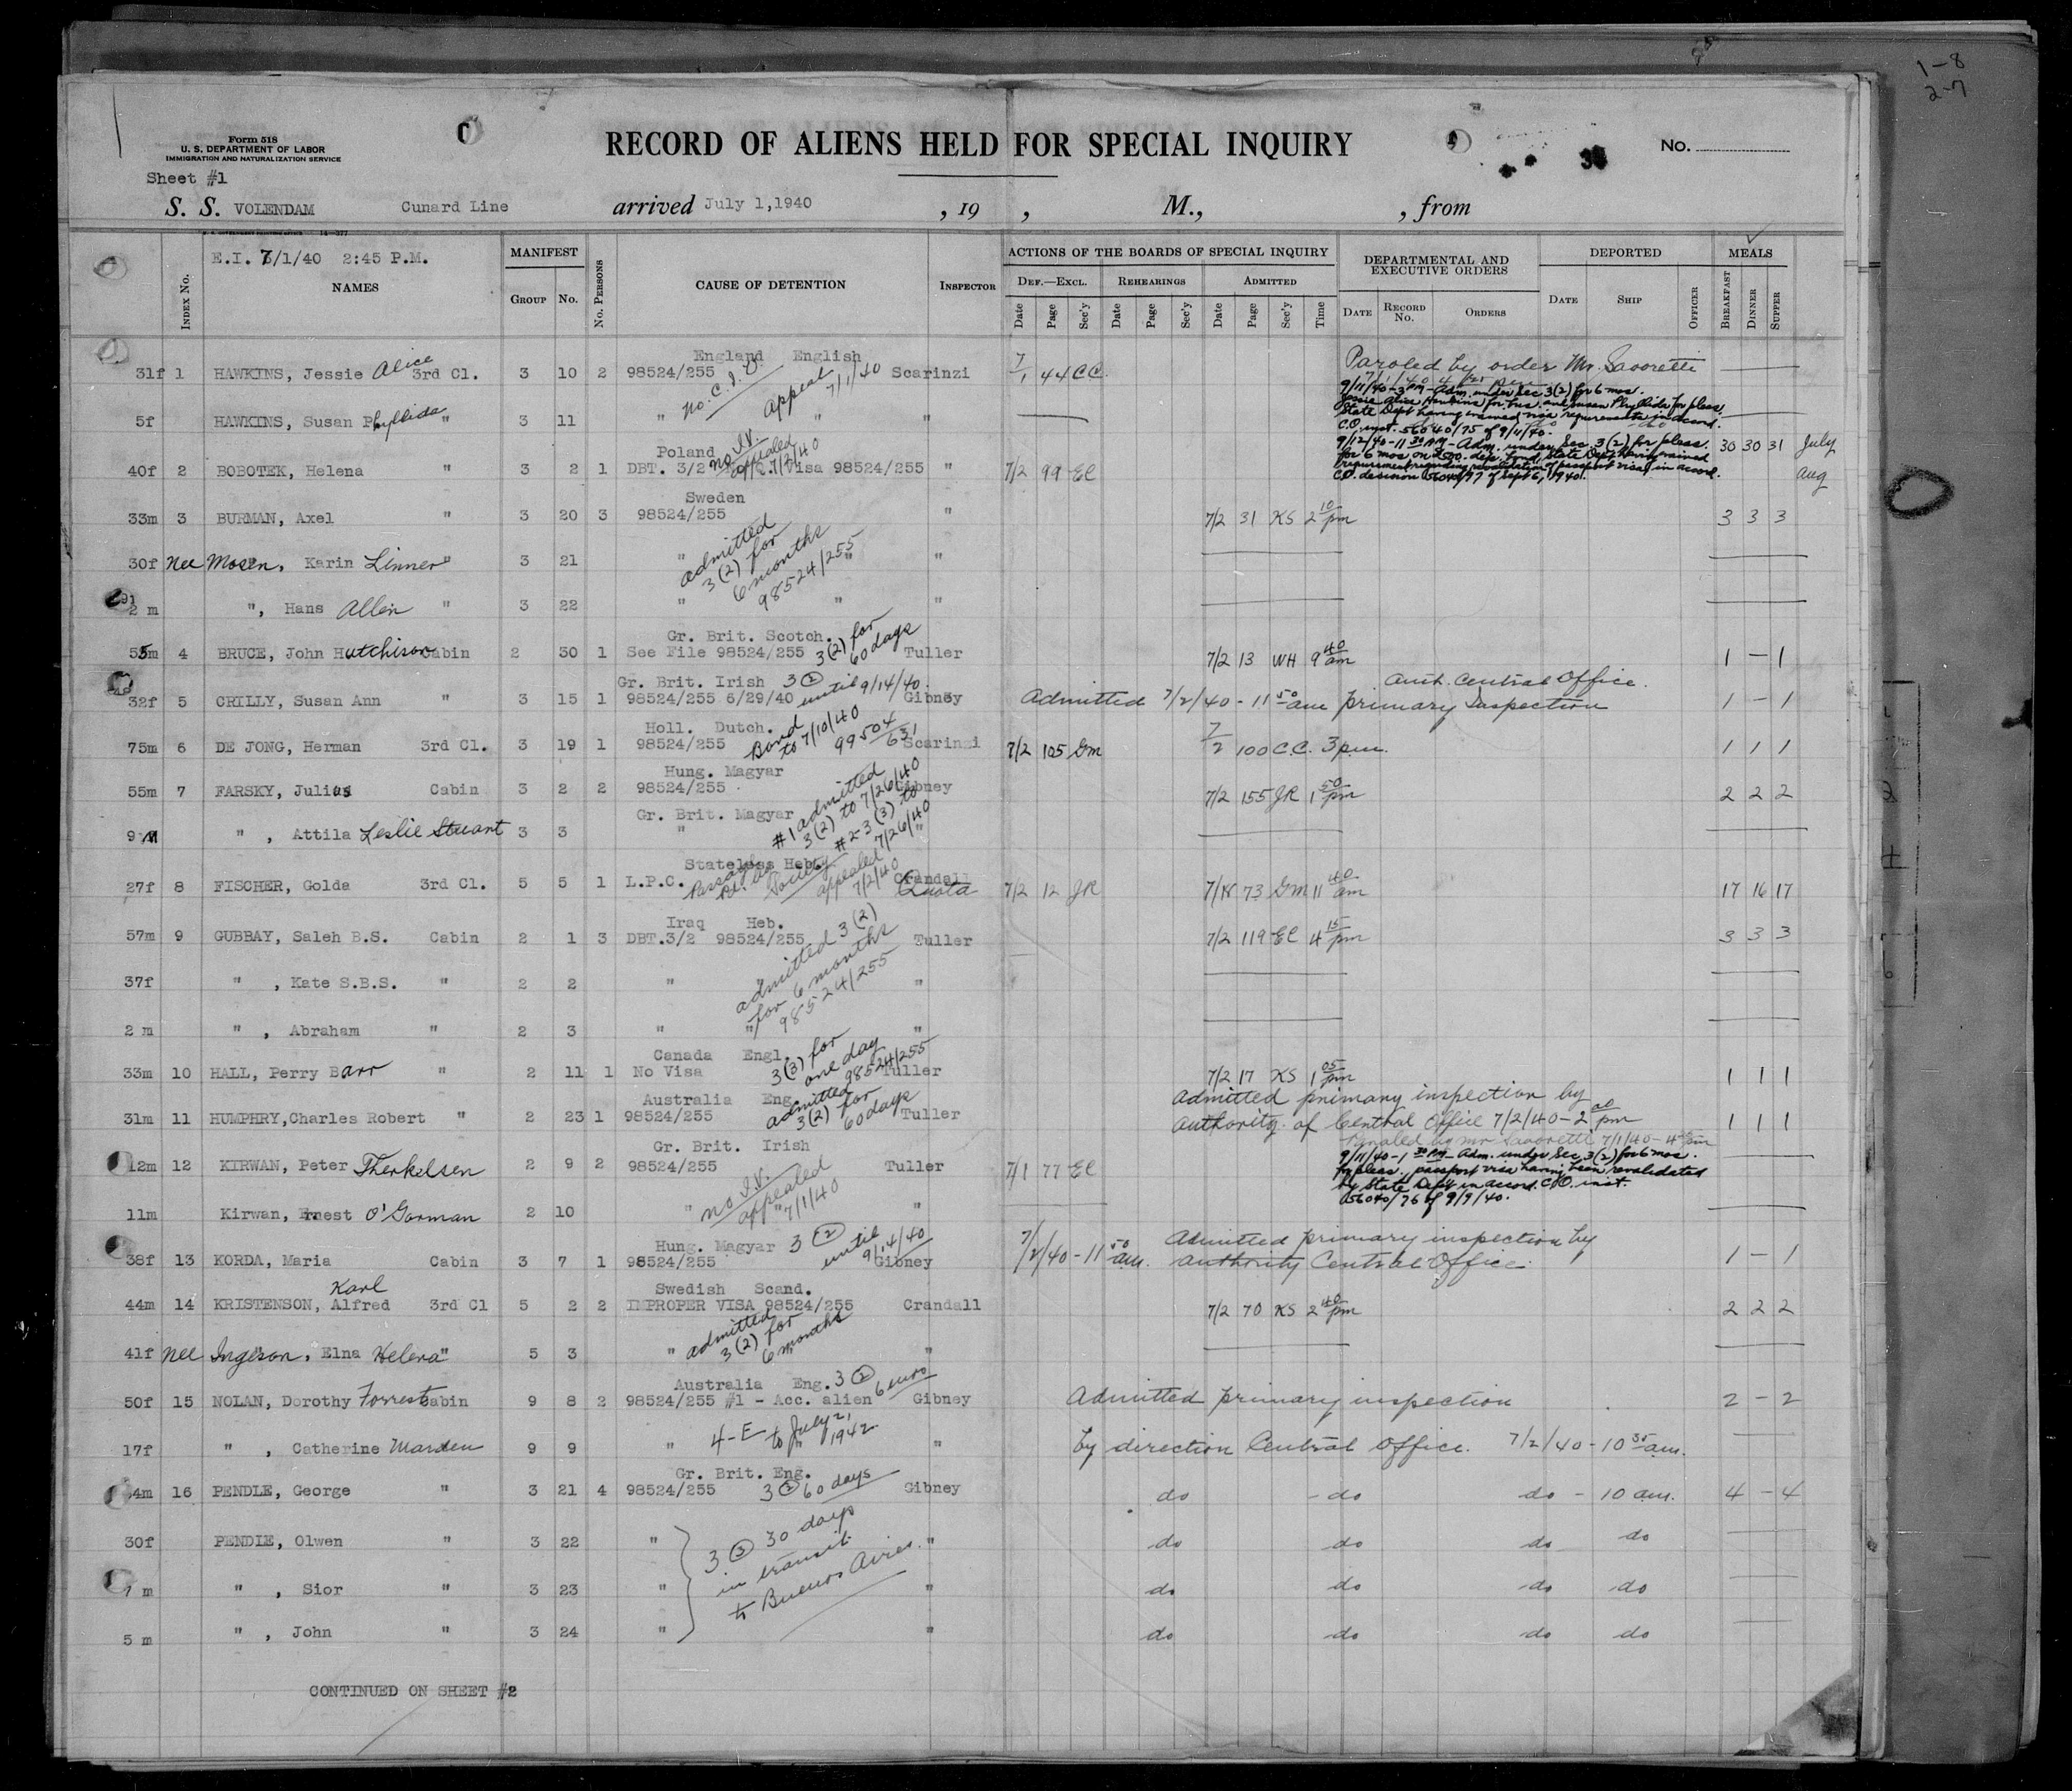 1-8
2-7
Form 518
U. S. DEPARTMENT OF LABOR
IMMIGRATION AND NATURALIZATION SERVICE
RECORD OF ALIENS HELD FOR SPECIAL INQUIRY
No.
Sheet #1
S. S. VOLENDAM Cunard Line arrived July 1,1940 , 19 , M., , from
E.I. 7/1/40 2:45 P.M.
Index No. NAMES MANIFEST Group No. No. Persons CAUSE OF DETENTION Inspector
ACTIONS OF THE BOARDS OF SPECIAL INQUIRY
Def.—Excl. Rehearings Admitted
Date Page Sec'y Date Page Sec'y Date Page Sec'y Time
DEPARTMENTAL AND EXECUTIVE ORDERS
Date Record No. Orders
DEPORTED
Date Ship Officer
MEALS
Breakfast Dinner Supper
England English
31f 1 HAWKINS, Jessie Alice 3rd Cl. 3 10 2 98524/255 Scarinzi 7/1 44 CC
Appeal 7/1/40
Paroled by order Mr. Savoretti
9/11/40-3 PM-Adm. under Sec 3(2) for 6 mos.
C.O. inst. 56040/75 of 9/11/40.
5f HAWKINS, Susan Phyllida " 3 11 " " "
Poland
no I.V. appealed 7/2/40
40f 2 BOBOTEK, Helena " 3 2 1 DBT. 3/2 Visa 98524/255 " 7/2 99 EC 30 30 31 July
Aug
9/12/40-11 30 AM-Adm. under Sec. 3(2) for pleas.
for 6 mos on 500. dep. bond, State Dept having waived
requirement regarding revalidation of passport visa in accord.
C.O. decision 56040/97 of Sept 6, 1940.
Sweden
33m 3 BURMAN, Axel " 3 20 3 98524/255 " 7/2 31 KS 2 10 pm 3 3 3
30f nee Mosen, Karin Linner " 3 21 " " "
admitted
3(2) for
6 months
98524/255
2 m ", Hans Allen " 3 22 " " "
Gr. Brit. Scotch.
55m 4 BRUCE, John Hutchison Cabin 2 30 1 See File 98524/255 3(2) for 60 days Tuller 7/2 13 WH 9 40 am 1 - 1
Gr. Brit. Irish 3 (2) until 9/14/40.
Auth. Central Office.
32f 5 CRILLY, Susan Ann " 3 15 1 98524/255 6/29/40 Gibney Admitted 7/2/40 - 11 50 am primary Inspection 1 - 1
Holl. Dutch.
75m 6 DE JONG, Herman 3rd Cl. 3 19 1 98524/255 Bond to 7/10/40 99504/631 Scarinzi 7/2 105 GM 7/2 100 C.C. 3 pm. 1 1 1
Hung. Magyar
55m 7 FARSKY, Julius Cabin 3 2 2 98524/255 Gibney 7/2 155 JR 1 50 pm 2 2 2
Gr. Brit. Magyar
#1 admitted
3(2) to 7/26/40
#2-3(3) to
7/26/40
9 M " , Attila Leslie Stuart 3 3 " "
Stateless Heb.
27f 8 FISCHER, Golda 3rd Cl. 5 5 1 L.P.C. Passage Society appealed 7/2/40 Crandall Quota 7/2 12 JR 7/18 73 GM 11 40 am 17 16 17
Iraq Heb.
57m 9 GUBBAY, Saleh B.S. Cabin 2 1 3 DBT.3/2 98524/255 Tuller 7/2 119 EC 4 15 pm 3 3 3
admitted 3(2)
for 6 months
98524/255
37f " , Kate S.B.S. " 2 2 " "
2 m " , Abraham " 2 3 " " "
Canada Engl.
33m 10 HALL, Perry Barr " 2 11 1 No Visa 3(3) for one day 98524/255 Tuller 7/2 17 KS 1 05 pm 1 1 1
Australia Eng.
admitted 3(2) for 60 days
31m 11 HUMPHRY,Charles Robert " 2 23 1 98524/255 Tuller Admitted primary inspection by
Authority of Central Office 7/2/40 - 2 00 pm 1 1 1
Gr. Brit. Irish
12m 12 KIRWAN, Peter Therkelsen 2 9 2 98524/255 Tuller 7/1 77 EC
Paroled by Mr Savoretti 7/1/40 - 4
9/11/40-1 30 PM-Adm. under Sec 3(2) for 6 mos.
for pleas., passport visa having been revalidated
by State Dept in accord. C.O. inst.
56040/76 of 9/9/40.
no I.V. appealed 7/1/40
11m Kirwan, Ernest O'Gorman 2 10 " " "
Hung. Magyar 3 (2) until 9/14/40
38f 13 KORDA, Maria Cabin 3 7 1 98524/255 Gibney 7/2/40 - 11 50 am. Admitted primary inspection by
authority Central Office. 1 - 1
Swedish Scand.
44m 14 KRISTENSON, Karl Alfred 3rd Cl 5 2 2 IMPROPER VISA 98524/255 Crandall 7/2 70 KS 2 40 pm 2 2 2
admitted
3(2) for
6 months
41f nee Ingeson, Elna Helena " 5 3 " " "
Australia Eng. 3 (2) 6 mos
50f 15 NOLAN, Dorothy Forrest Cabin 9 8 2 98524/255 #1 - Acc. alien Gibney Admitted primary inspection 2 - 2
17f " , Catherine Marden 9 9 " 4-E to July 2, 1942 " by direction Central Office. 7/2/40 - 10 35 am.
Gr. Brit. Eng.
4m 16 PENDLE, George " 3 21 4 98524/255 3 (2) 60 days Gibney do - do do - 10 am. 4 - 4
30f PENDLE, Olwen " 3 22 " " do do do do
3 (3) 30 days
in transit
to Buenos Aires.
7 m " , Sior " 3 23 " " do do do do
5 m " , John " 3 24 " " do do do do
CONTINUED ON SHEET #2